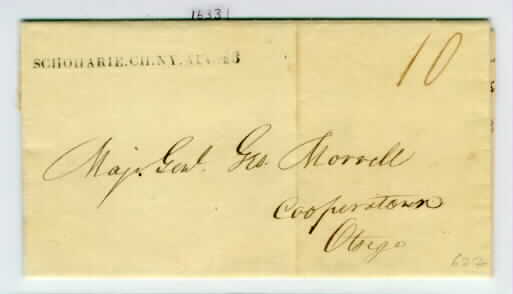 1633
SCHOHARIE.CH.NY.
10
Maj. Genl. Geo. Morrell
Cooperstown
Otsego
622